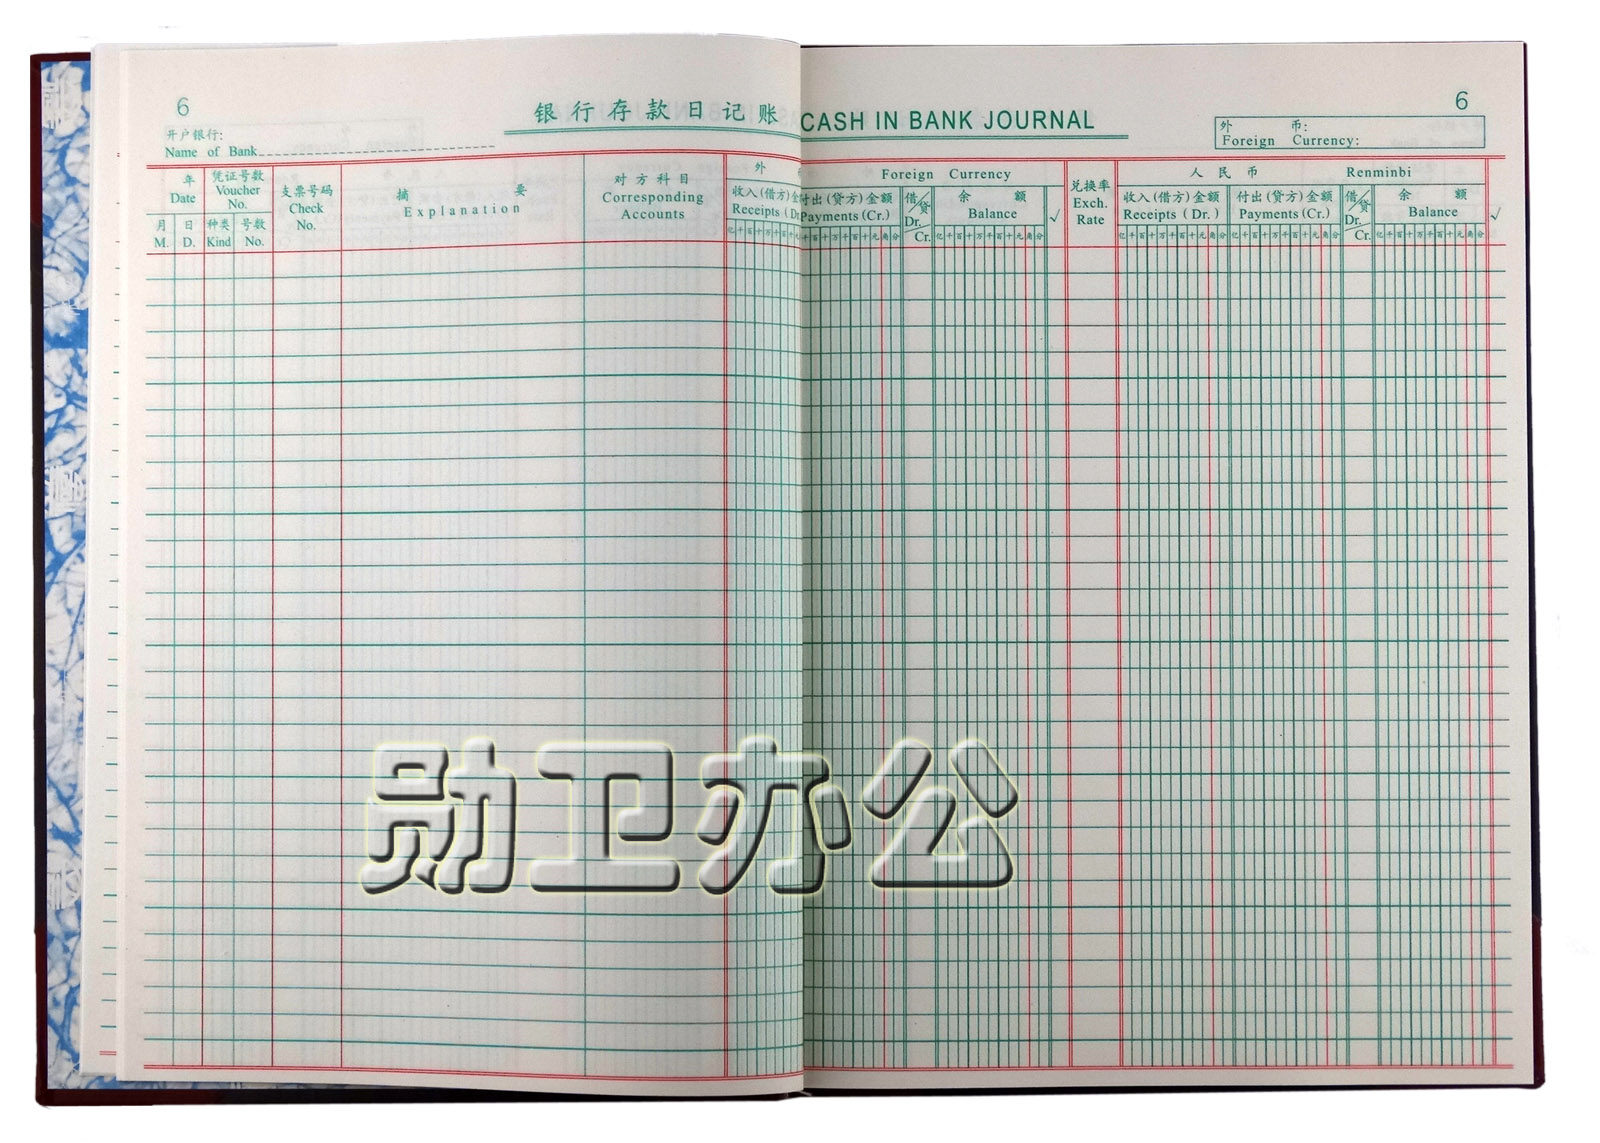 6
银行存款日记账 CASH IN BANK JOURNAL
6
开户银行:
Name of Bank
外 币:
Foreign Currency:
年
Date
凭证号数
Voucher
No.
月
M.
日
D.
种类
Kind
号数
No.
支票号码
Check
No.
摘 要
Explanation
对方科目
Corresponding
Accounts
外
Foreign Currency
收入(借方)金
Receipts (Dr
亿千百十万千百十
付出(贷方)金额
Payments (Cr.)
百十万千百十元角分
借/贷
Dr./Cr.
余 额
Balance
亿千百十万千百十元角分
√
兑换率
Exch.
Rate
人 民 币 Renminbi
收入(借方)金额
Receipts (Dr.)
亿千百十万千百十元角分
付出(贷方)金额
Payments (Cr.)
亿千百十万千百十元角分
借/贷
Dr./Cr.
余 额
Balance
亿千百十万千百十元角分
√
勋卫办公